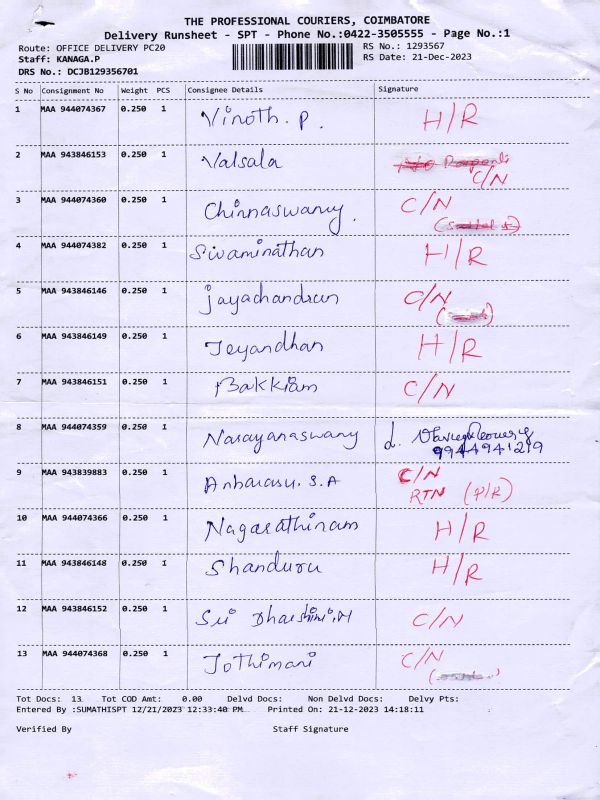 THE PROFESSIONAL COURIERS, COIMBATORE
Delivery Runsheet - SPT - Phone No.:0422-3505555 - Page No.:1
Route: OFFICE DELIVERY PC20 RS No.: 1293567
Staff: KANAGA.P RS Date: 21-Dec-2023
DRS No.: DCJB129356701
S No Consignment No Weight PCS Consignee Details Signature
1 MAA 944074367 0.250 1 Vinoth. P. H/R
2 MAA 943846153 0.250 1 Valsala
C/N
3 MAA 944074360 0.250 1 Chinnaswamy. C/N
4 MAA 944074382 0.250 1 Sivaminathan H/R
5 MAA 943846146 0.250 1 Jayachandran C/N
6 MAA 943846149 0.250 1 Jeyandhan H/R
7 MAA 943846151 0.250 1 Bakkiam C/N
8 MAA 944074359 0.250 1 Narayanaswamy d.
9944941219
9 MAA 943839883 0.250 1 Anbarasu. S.A C/N
RTN (P/R)
10 MAA 944074366 0.250 1 Nagarathinam H/R
11 MAA 943846148 0.250 1 Shanduru H/R
12 MAA 943846152 0.250 1 Sri Dharshini.M C/N
13 MAA 944074368 0.250 1 Jothimani C/N
Tot Docs: 13 Tot COD Amt: 0.00 Delvd Docs: Non Delvd Docs: Delvy Pts:
Entered By :SUMATHISPT 12/21/2023 12:33:40 PM Printed On: 21-12-2023 14:18:11
Verified By Staff Signature